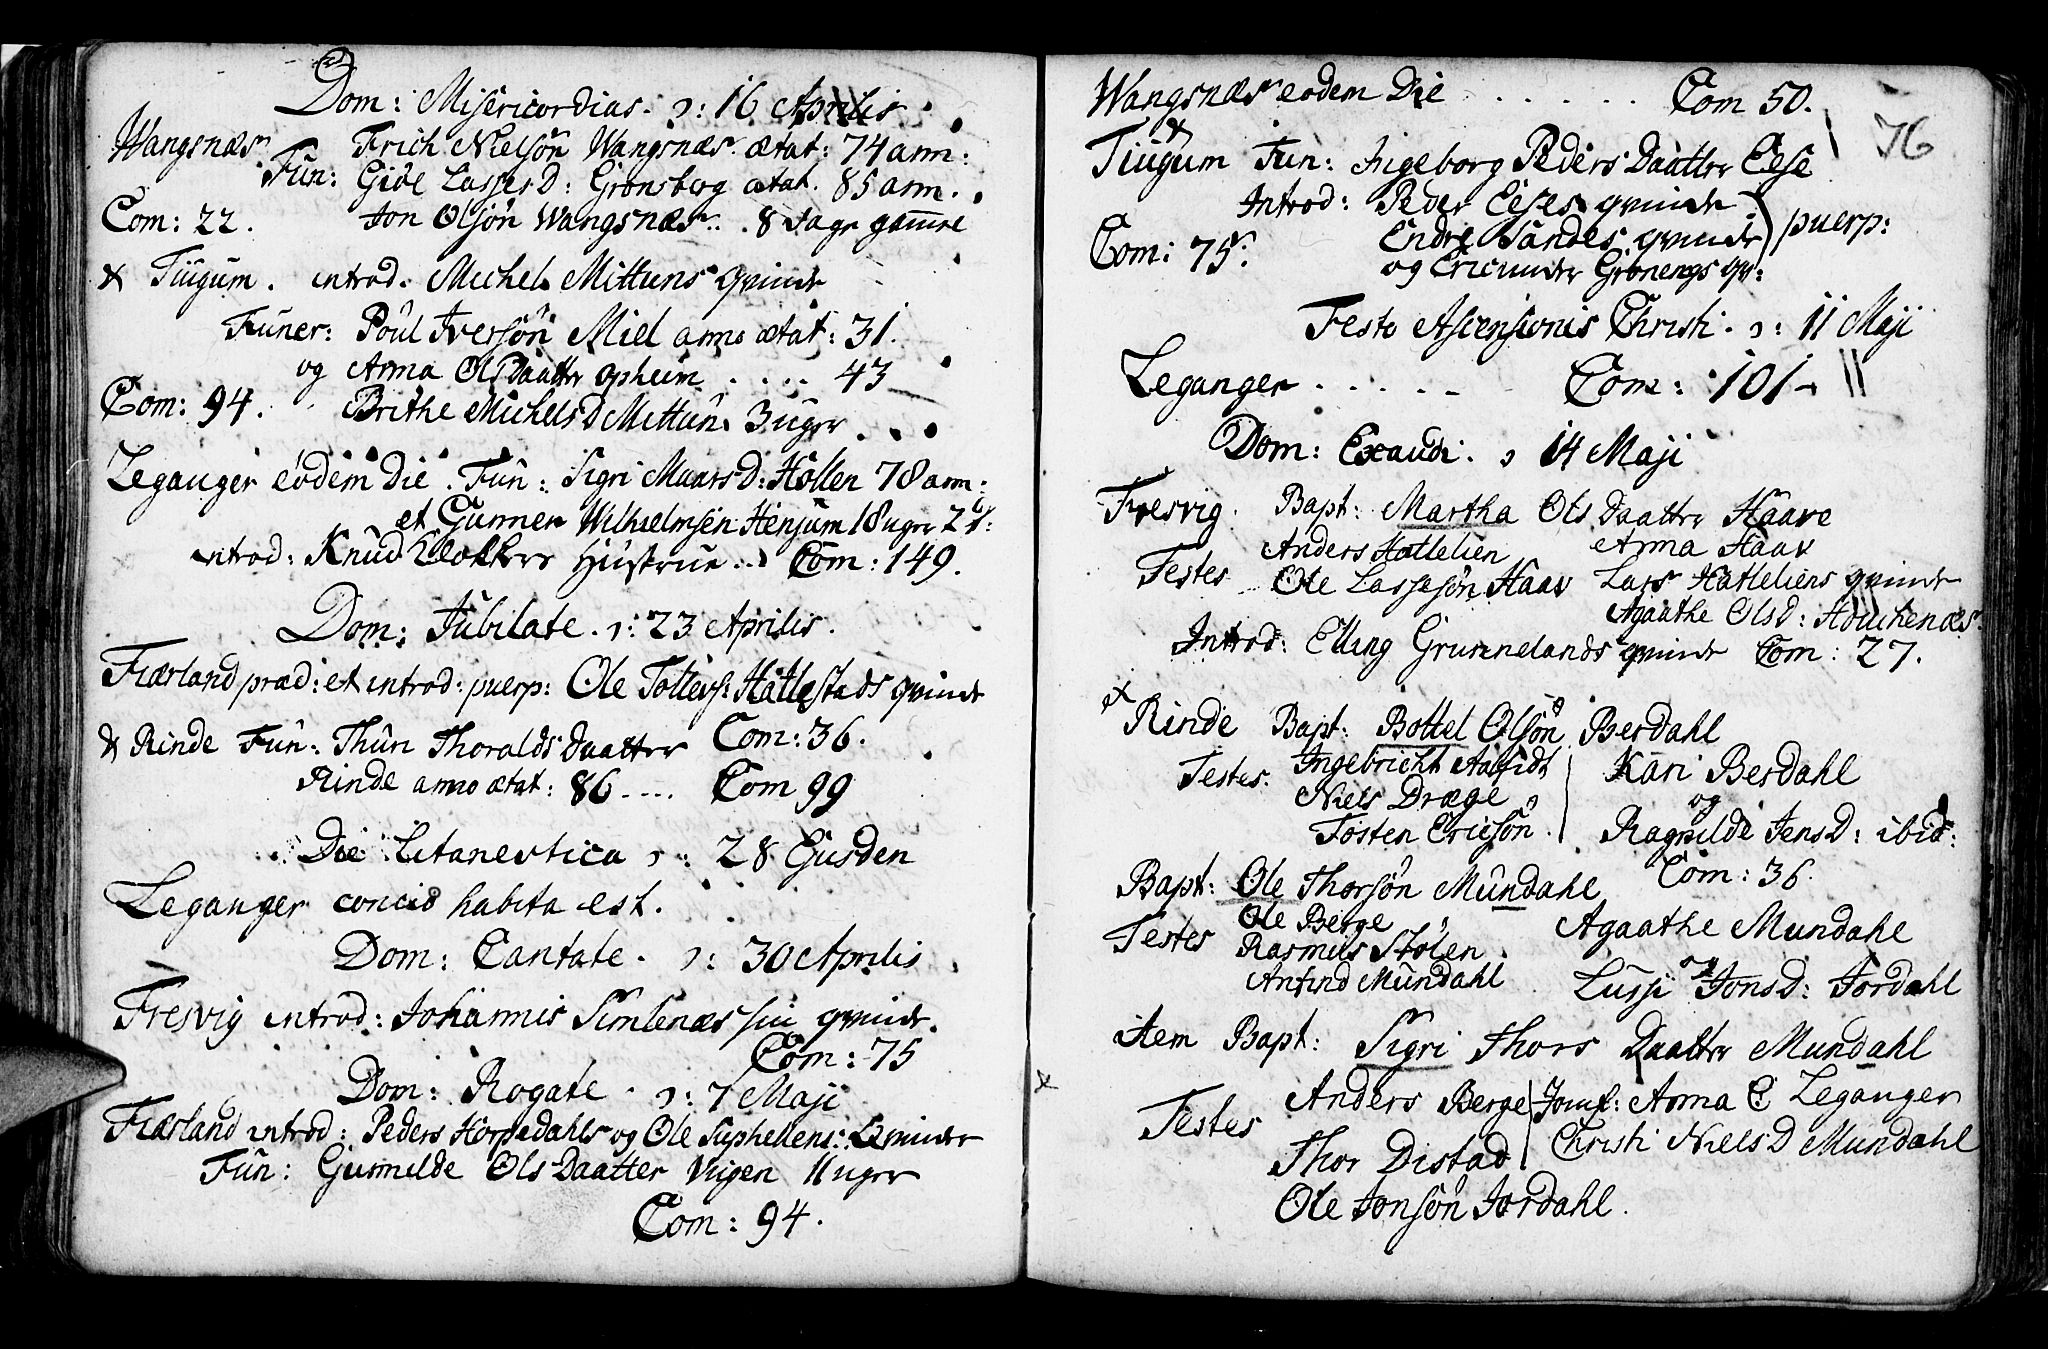 Dom: Misericordias. ɔ: 16 Aprilis.
Wangsnæs Fun: Erich Nielsön Wangsnæs ætat: 74 ann:
Giöe Lasses D: Grönsberg ætat. 85 ann.
Com: 22. Jon Olsön Wangsnæs .. 8 dage gam̄le
Tiugum. introd. Michel Mittuns qvinde
Funer: Poul Iversön Miel anno ætat: 31.
og Anna Ols Daatter opheim .... 43
Com: 94. Brithe Michels D Mittun 3 uger.
Leganger eodem Die. Fun: Sigri Maars D: Hollen 78 ann:
et Gunner Wilhelmsen Henjum 18 uger
introd: Knud Klokkers Hustrue .. Com: 149.
Dom: Jubilate. ɔ: 23 Aprilis.
Fiærland præd: et introd: puerp: Ole Tollevs: Hatlestads qvinde
Rinde Fun: Thuri Thoralds Daatter Com: 36.
Rinde anno ætat: 86 .... Com 99
Die Litaneutica ɔ: 28 Ejusdem
Leganger concio habita est.
Dom: Cantate. ɔ: 30 Aprilis.
Fresvig introd: Johannis Simlenæs sin qvinde.
Com: 75
Dom: Rogate. ɔ: 7 Maji
Fiærland introd: Peders Horpedahls og Ole Suphellens: Qvinder
Fun: Gunnilde Ols Daatter Vigen 11 uger
Com: 94.
Wangsnæs eodem Die ...... Com 50.
76
Tiugum Fun: Ingeborg Peders Daatter Eese
Introd: Peder Eeses qvinde
Com: 75. Endre Sandes qvinde puerp:
og Eric Grönengs qv:
Festo Ascensionis Christi. ɔ: 11 Maji
Leganger ..... Com: 101
Dom: Exaudi. ɔ 14 Maji
Fresvig. Bapt: Martha Ols Daatter Haave
Anders Hatlelien Anna Haav
Testes Ole Lassesön Haav Lars Hatleliens qvinde
Agaathe Ols D:
Introd: Elling Grummelands qvinde Com: 27.
Rinde Bapt: Bottel Olsön Berdahl
Testes. Ingebricht Kari Berdahl
Niels Dræge og
Tosten Ericsön. Ragnilde Jens D: ibid:
Com: 36.
Bapt: Ole Thorsön Mundahl
Ole Berge Agaathe Mundahl
Testes Rasmus Stölen og
Anfind Mundahl Lussi Jons D: Jordahl
item Bapt: Sigri Thors Daatter Mundahl
Anders Berge Jomf: Anna C: Leganger
Testes Thor Distad Christi Niels D Mundahl
Ole Jonsön Jordahl.